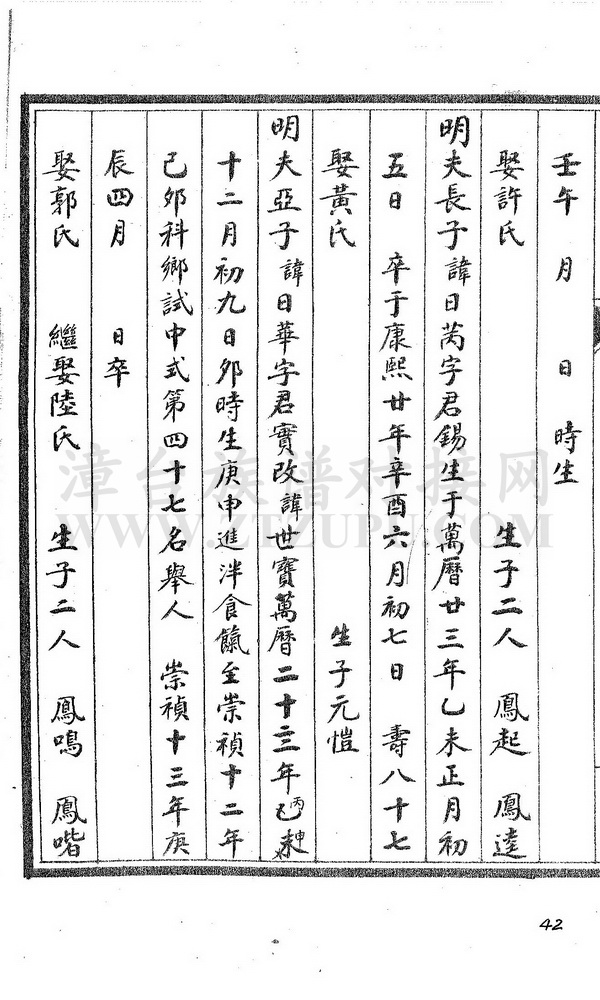 壬午　月　　日　時生
娶許氏　　　　生子二人　鳳起　鳳逵
明夫長子諱日芮字君錫生于萬曆廿三年乙未正月初
五日　卒于康熙廿年辛酉六月初七日　壽八十七
娶黃氏　　　　　　生子元愷
明夫亞子諱日華字君實改諱世寶萬曆二十三年己未丙申
十二月初九日夘時生庚申進泮食餼至崇禎十二年
己夘科鄉試中式第四十七名舉人　崇禎十三年庚
辰四月　　日卒
娶郭氏　　繼娶陸氏　　生子二人　鳳鳴　鳳喈
漳台族谱对接网
WWW.ZTZUPU.COM
42